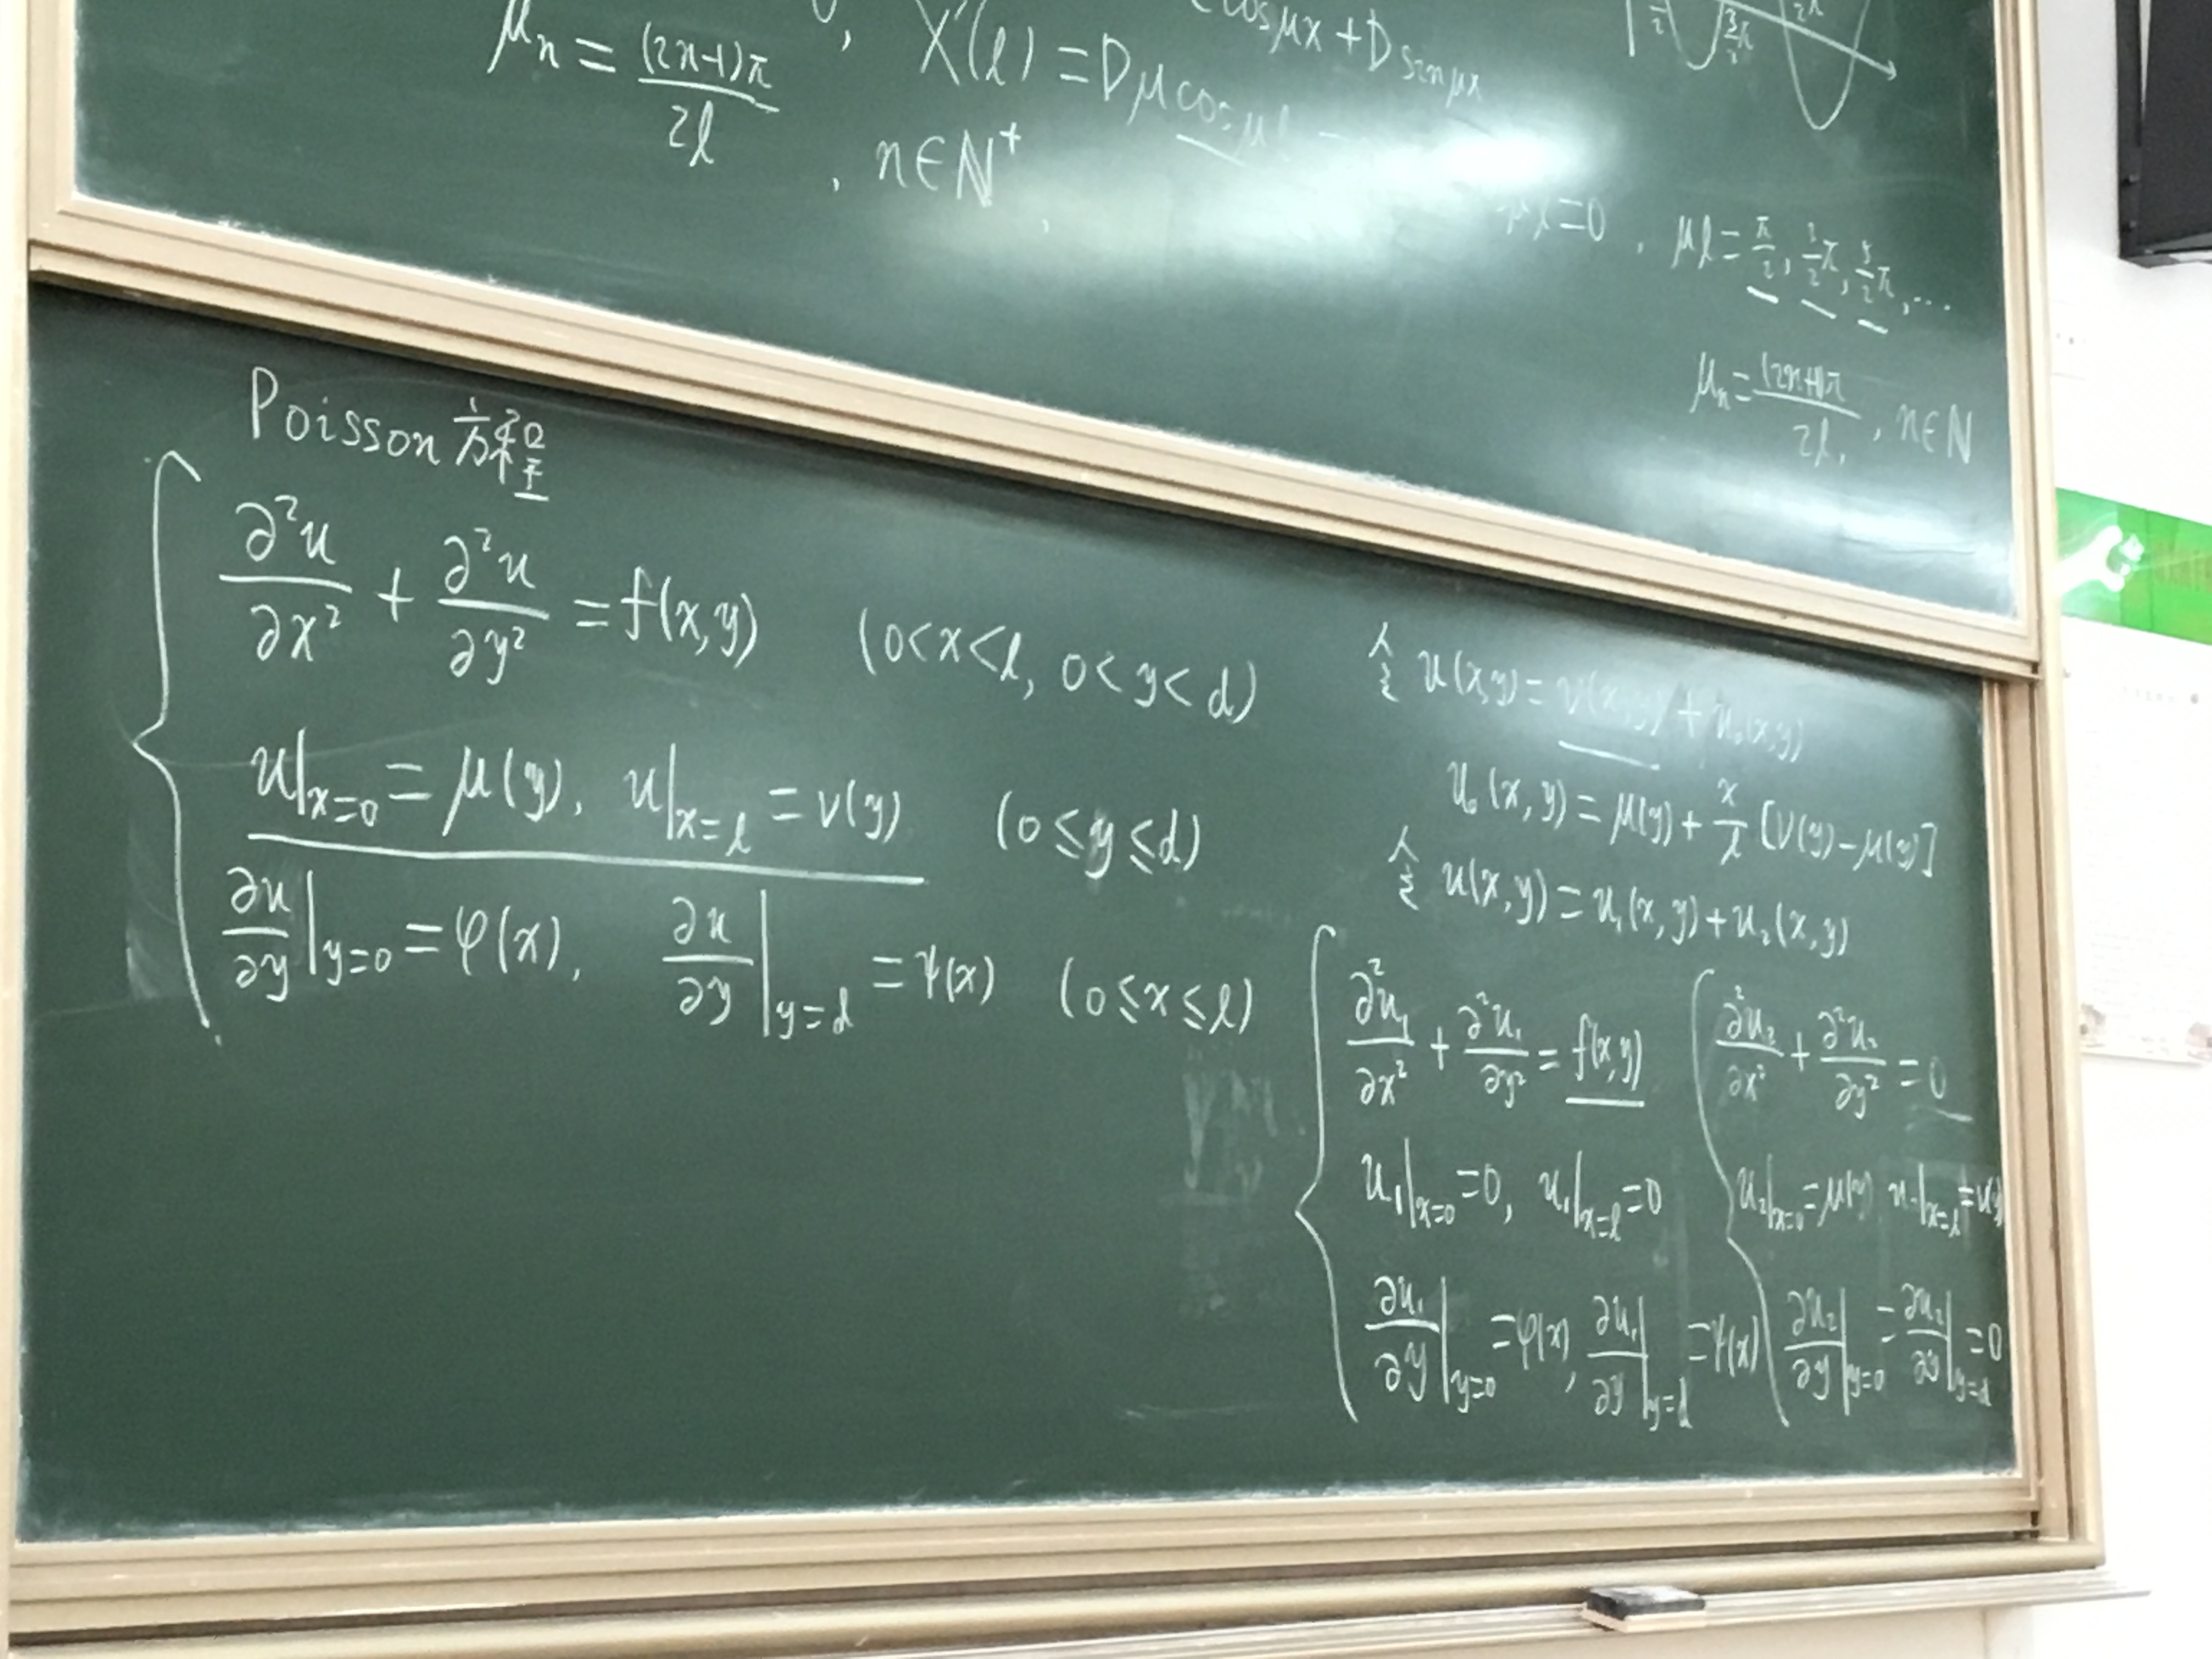 μₙ = (2n-1)π / 2l , n∈N⁺ ,
X'(l) = Dμcosμl
cosμx + D sinμx
μl=0 , μl = π/2, 3/2 π, 5/2 π, ...
μₙ = (2n+1)π / 2l , n∈N
Poisson 方程
∂²u/∂x² + ∂²u/∂y² = f(x,y) (0<x<l, 0<y<d)
u|x=0 = μ(y), u|x=l = ν(y) (0≤y≤d)
∂u/∂y|y=0 = φ(x), ∂u/∂y|y=d = ψ(x) (0≤x≤l)
令 u(x,y) = v(x,y) + u₀(x,y)
u₀(x,y) = μ(y) + x/l [ν(y)-μ(y)]
令 u(x,y) = u₁(x,y) + u₂(x,y)
∂²u₁/∂x² + ∂²u₁/∂y² = f(x,y)
u₁|x=0 = 0, u₁|x=l = 0
∂u₁/∂y|y=0 = φ(x), ∂u₁/∂y|y=d = ψ(x)
∂²u₂/∂x² + ∂²u₂/∂y² = 0
u₂|x=0 = μ(y) u₂|x=l = ν(y)
∂u₂/∂y|y=0 = ∂u₂/∂y|y=d = 0